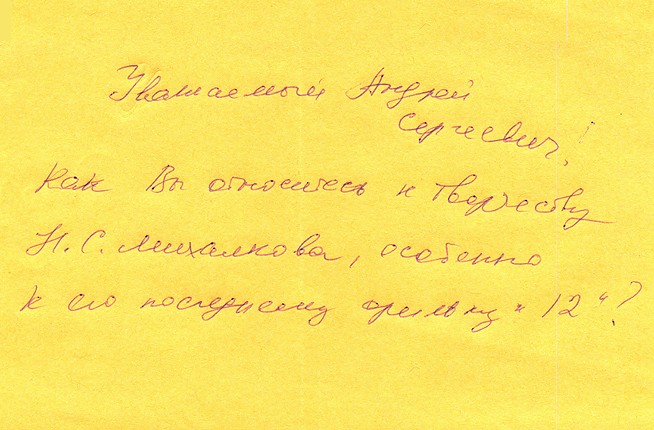 Уважаемый Андрей
Сергеевич!
Как Вы относитесь к творчеству
Н.С. Михалкова, особенно
к его последнему фильму "12"?